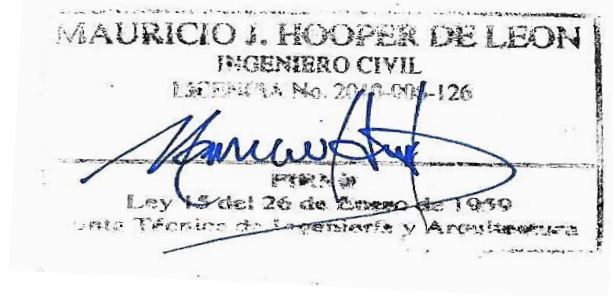 MAURICIO J. HOOPER DE LEON
INGENIERO CIVIL
LICENCIA No. 2018-006-126
FIRMA
Ley 15 del 26 de Enero de 1959
Junta Técnica de Ingeniería y Arquitectura